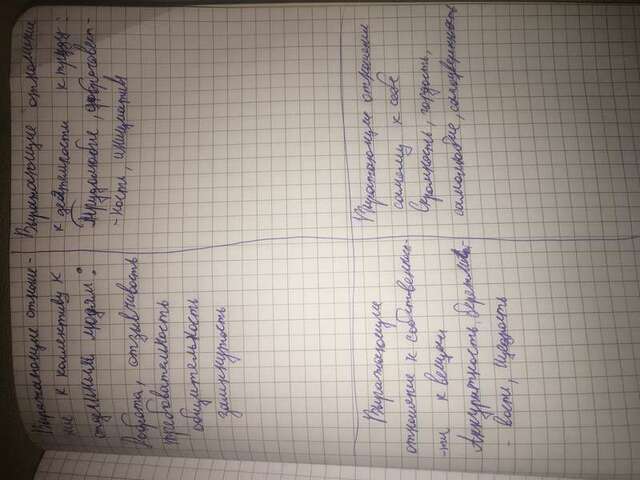 Выражающие отноше-
ние к коллективу к
отдельным людям:
Доброта, отзывчивость
требовательность
общительность
замкнутость
Выражающие отношение
к деятельности к труду:
Трудолюбие, добросовест-
-ность, инициатива
Выражающие
отношение к собственнос-
-ти к вещам
Аккуратность, бережли
- вость, щедрость
Выражающие отношение
самому к себе
Скромность, гордость,
самолюбие, самоуверенность